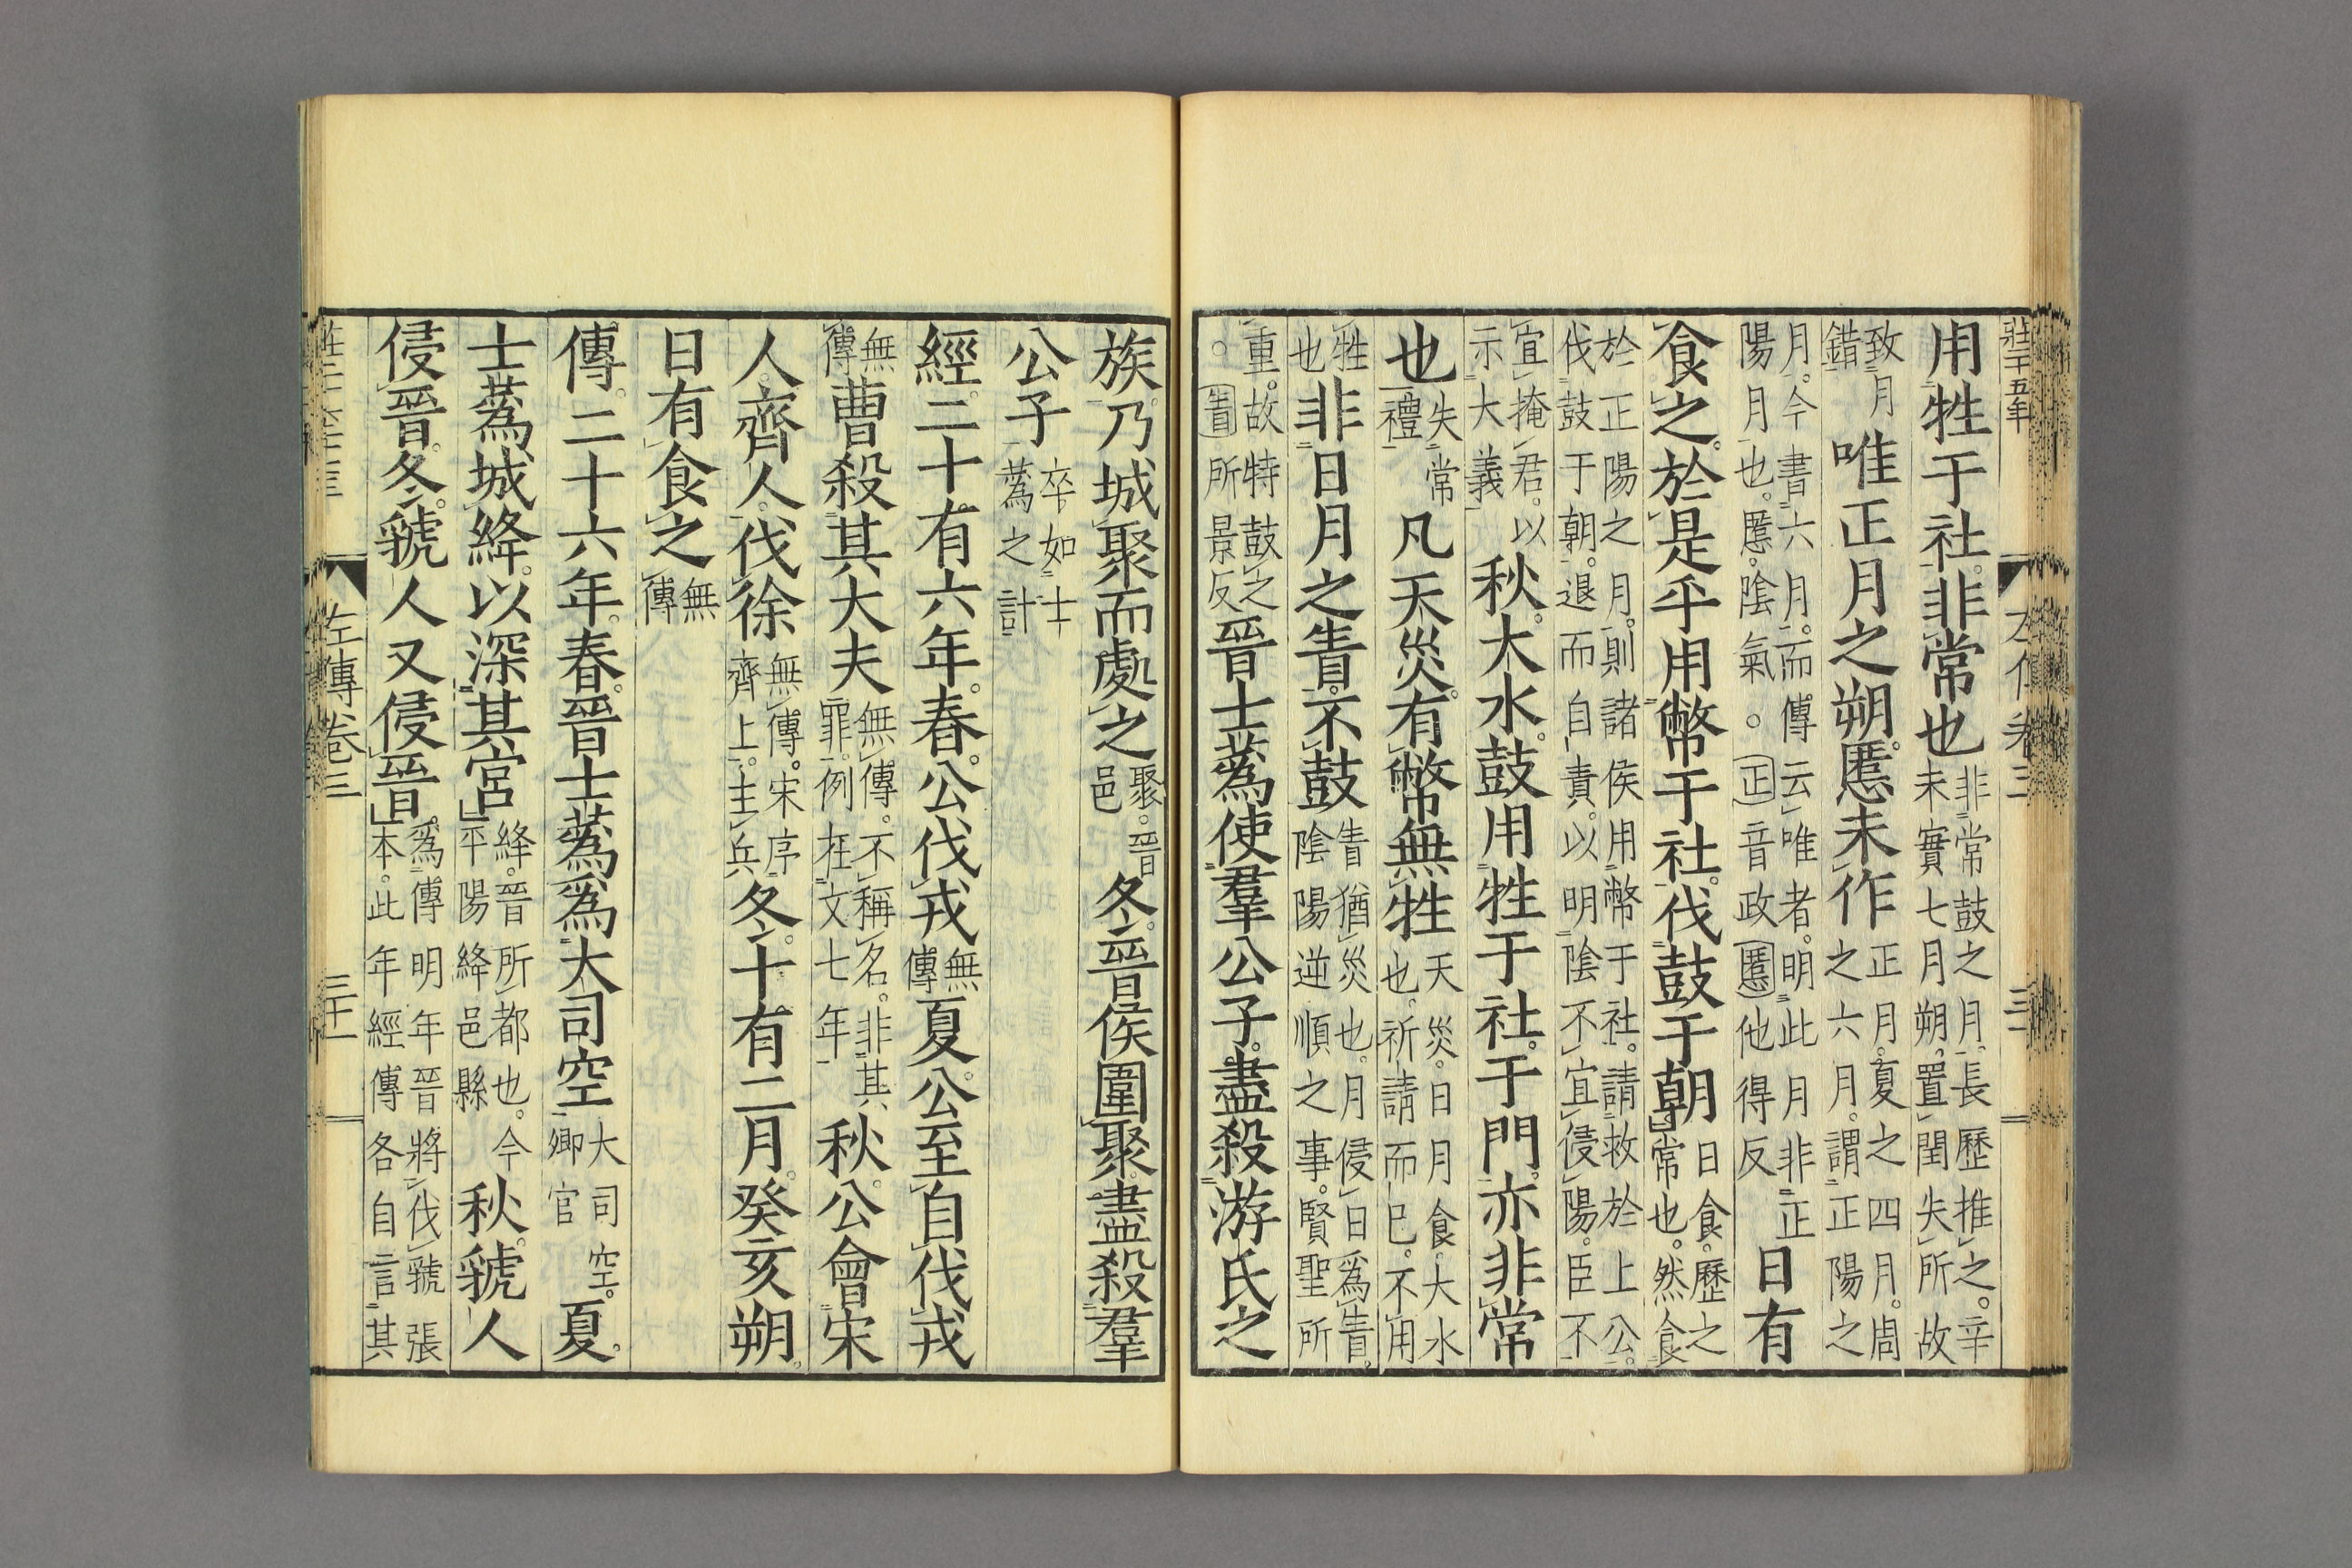 莊二十五年
用牲于社。非常也非常鼓之月、長歷推之。辛未實七月朔、置閏失所故
致月錯唯正月之朔。慝未作正月。夏之四月。周之六月。謂正陽之
月。今書六月。而傳云唯者。明此月非正陽月也。慝。陰氣。○正音政慝他得反日有
食之。於是乎用幣于社。伐鼓于朝。日食。歷之常也。然食
於正陽之月。則諸侯用幣于社。請救於上公。伐鼓于朝。退而自責。以明陰不宜侵陽。臣不
宜掩君。以示大義秋。大水。鼓用牲于社。于門。亦非常
也失常禮凡天災。有幣無牲天災。日月食。大水也。祈請而已。不用
牲也非日月之眚。不鼓眚猶災也。月侵日爲眚。陰陽逆順之事。賢聖所
重。故特鼓之。眚所景反晉士蒍使羣公子。盡殺游氏之
族。乃城聚而處之聚。晉邑冬。晉侯圍聚。盡殺羣
公子卒如士蒍之計
經。二十有六年。春。公伐戎無傳夏。公至自伐戎
無傳曹殺其大夫無傳。不稱名。非其罪。例在文七年秋。公會宋
人。齊人。伐徐無傳。宋序齊上。主兵冬。十有二月。癸亥朔。
日有食之無傳
傳。二十六年。春。晉士蒍爲大司空大司空。卿官夏。
士蒍城絳。以深其宮絳。晉所都也。今平陽絳邑縣秋。虢人
侵晉。冬。虢人又侵晉。爲傳明年晉將伐虢張本。此年經傳各自言其
左傳卷三
三十一